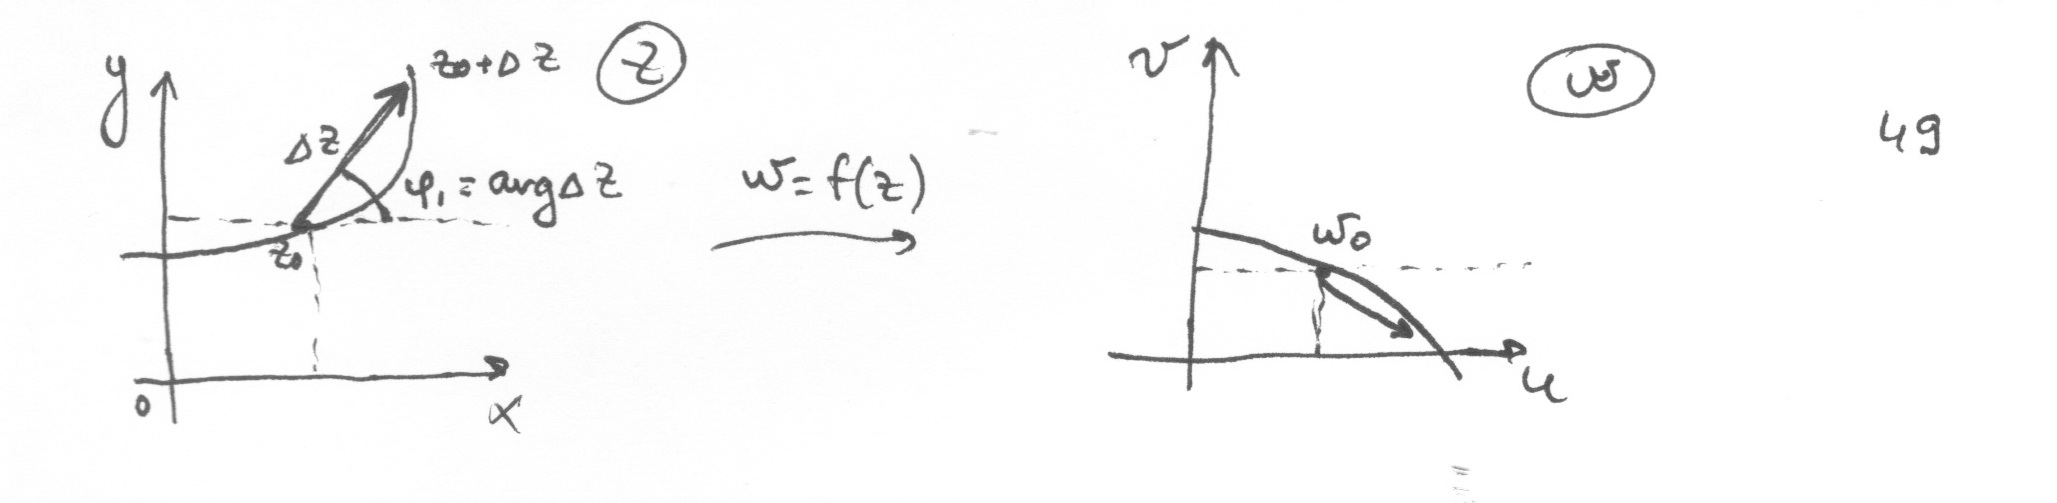 y
z₀+Δz
z
Δz
φ₁ = arg Δz
z₀
0
x
w = f(z)
v
w
w₀
u
49